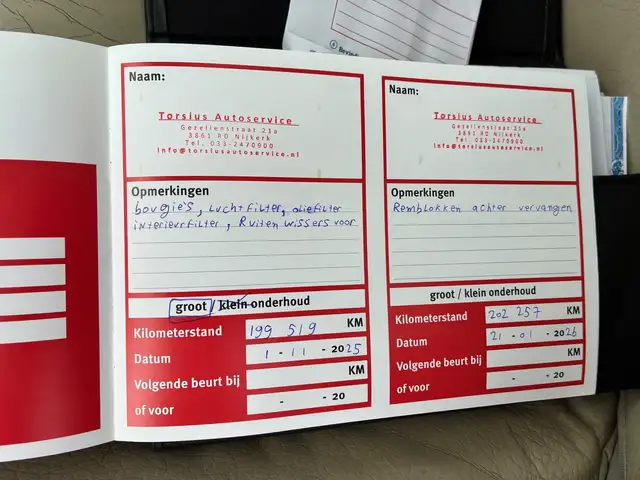 Bevin
Naam:
Torsius Autoservice
Gezellenstraat 21a
3861 RD Nijkerk
Tel. 033-2470900
info@torsiusautoservice.nl
Opmerkingen
bougie's, Luchtfilter, oliefilter
interieurfilter, Ruiten wissers voor
groot / klein onderhoud
Kilometerstand 199 519 KM
Datum 1 - 11 - 2025
Volgende beurt bij KM
of voor - - 20
Naam:
Torsius Autoservice
Gezellenstraat 21a
3861 RD Nijkerk
Tel. 033-2470900
info@torsiusautoservice.nl
Opmerkingen
Remblokken achter vervangen
groot / klein onderhoud
Kilometerstand 202 257 KM
Datum 21 - 01 - 2026
Volgende beurt bij KM
of voor - - 20